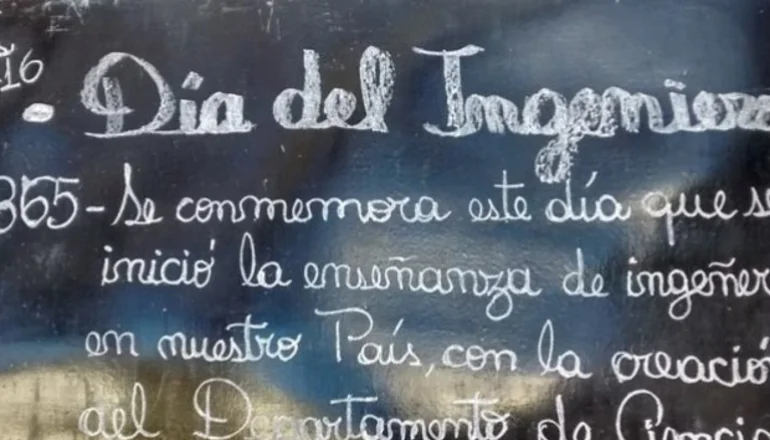 16
Día del Ingeniero
865-Se conmemora este día que se
inició la enseñanza de ingeñer
en nuestro País, con la creació
del Departamento de Cienci